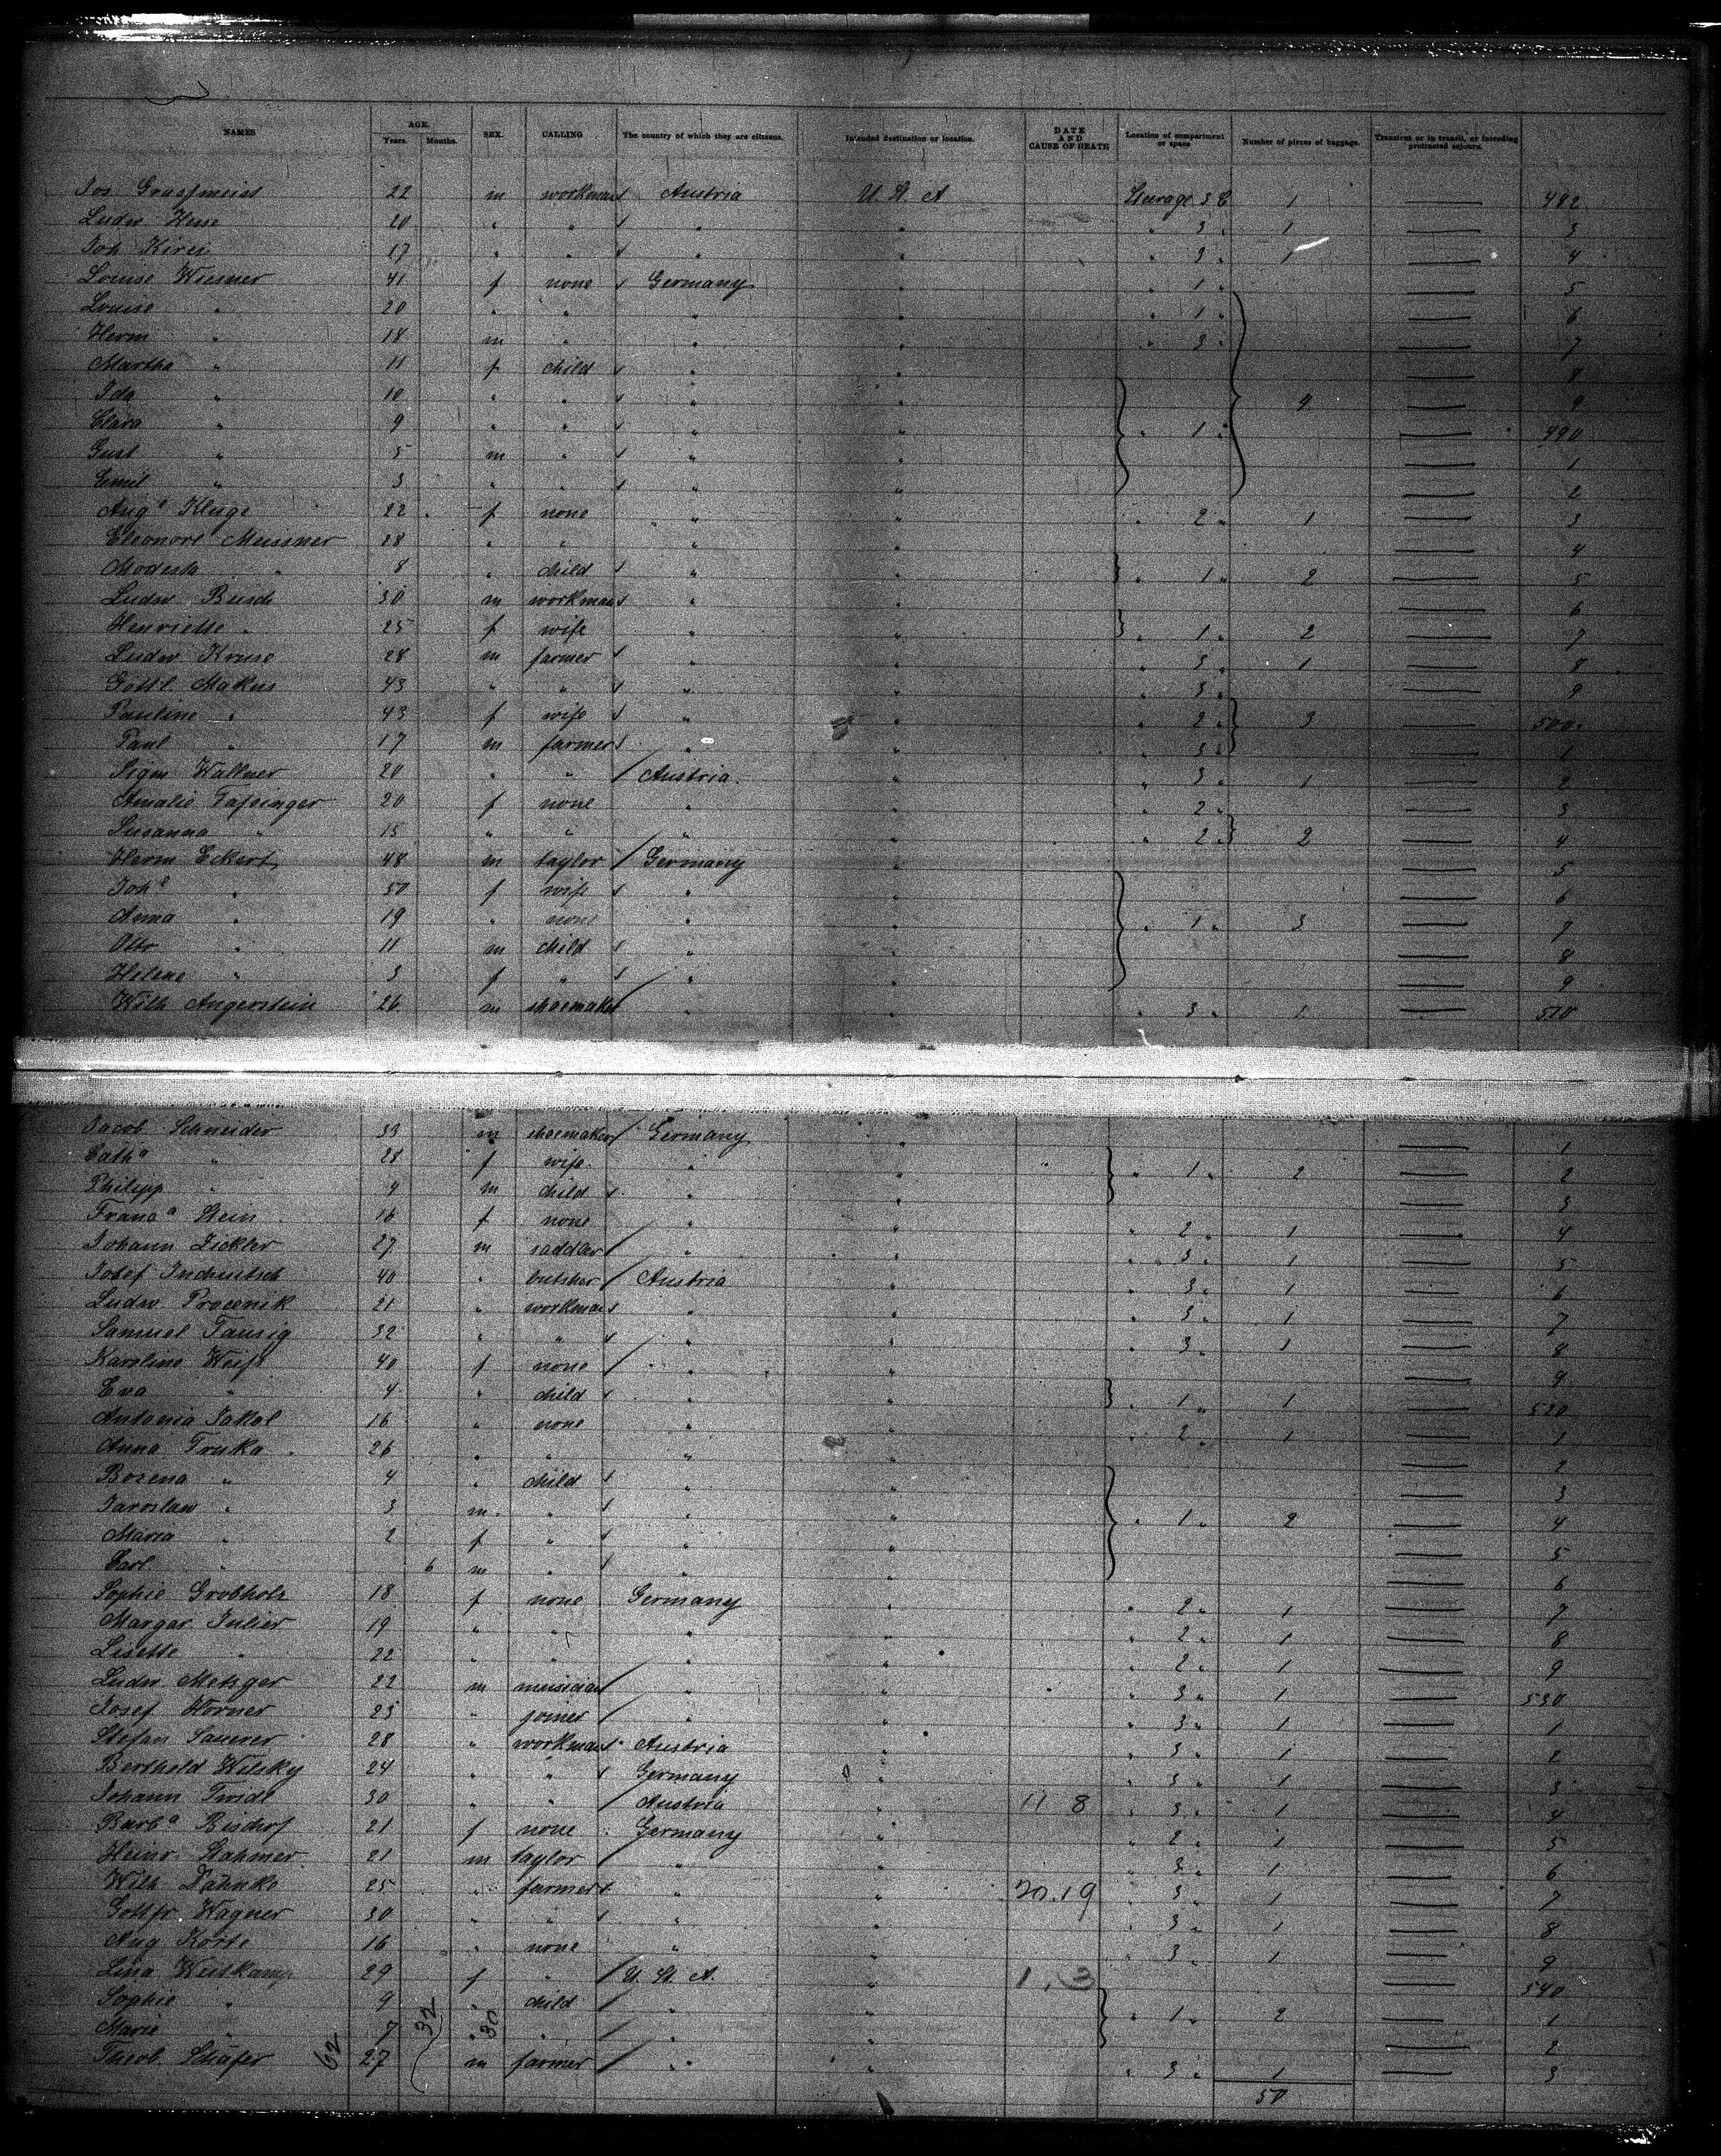 NAMES AGE. SEX. CALLING The country of which they are citizens. Intended destination or location. DATE AND CAUSE OF DEATH Location of compartment or space Number of pieces of baggage. Transient or in transit, or intending protracted sojourn.
Years. Months.
Jos 22 m workman Austria U. St. A Steerage 3 C 1 — 482
Ludw. Hesse 20 " " " " " 3 " 1 — 3
Joh 17 " " " " " 3 " 1 — 4
Louise Wiesner 41 f none Germany " " 1 " — 5
Louise " 20 " " " " " 1 " — 6
Herm " 18 m " " " " 3 " — 7
Martha " 11 f child " " — 8
Ida " 10 " " " " 9 — 9
Clara " 9 " " " " " 1 " — 490
Gust " 5 m " " " — 1
Emil " 3 " " " " — 2
Augᵉ Kluge 22 f none " " " 2 " 1 — 3
Eleonore Meissner 28 " " " " — 4
Modesta " 8 " child " " " 1 " 2 — 5
Ludw. Busch 30 m workman " " — 6
Henriette " 25 f wife " " " 1 " 2 — 7
Ludw. Kruse 28 m farmer " " " 3 " 1 — 8
Gottl. Makus 43 " " " " " 3 " — 9
Pauline " 43 f wife " " " 2 " 3 — 500
Paul " 17 m farmer " " " 3 " — 1
Sigm Wallner 20 " " Austria " " 3 " 1 — 2
Amalie 20 f none " " " 2 " — 3
Susanna " 15 " " " " " 2 " 2 — 4
Herm Eckert 48 m taylor Germany " — 5
Johᵉ " 50 f wife " " — 6
Anna " 19 " none " " " 1 " 3 — 7
Otto " 11 m child " " — 8
Helene " 3 f " " " — 9
Wilh Angerstein 26 m shoemaker " " " 3 " 1 — 510
Jacob Schneider 33 m shoemaker Germany " — 1
Cathᵃ " 28 f wife " " " 1 " 2 — 2
Philipp " 4 m child " " 3
Francᵃ Stein 16 f none " " " 2 " 1 — 4
Johann Zickler 27 m saddler " " " 3 " 1 — 5
Josef 40 " butsher Austria " " 3 " 1 — 6
Ludw. Procenik 21 " workman " " " 3 " 1 — 7
Samuel Tausig 32 " " " " " 3 " 1 — 8
Karoline Weiss 40 f none " " — 9
Eva " 4 " child " " " 1 " 1 — 520
Antonia 16 " none " " " 2 " 1 — 1
Anna Truka 26 " " " " — 2
Bozena " 4 " child " " — 3
Jaroslaw " 3 m " " " " 1 " 2 — 4
Maria " 2 f " " " — 5
Carl " 6 m " " " — 6
Sophie Grobholz 18 f none Germany " " 2 " 1 — 7
Margar Julier 19 " " " " " 2 " 1 — 8
Lisette " 22 " " " " " 2 " 1 — 9
Ludw. Metzger 22 m musician " " " 3 " 1 — 530
Josef Horner 25 " joiner " " " 3 " 1 — 1
Stefan Sauerer 28 " workman Austria " " 3 " 1 — 2
Berthold Wilsky 24 " " Germany " " 3 " 1 — 3
Johann 30 " " Austria " 11 8 " 3 " 1 — 4
Barbᵃ Bischof 21 f none Germany " " 2 " 1 — 5
Heinr. Stahmer 21 m taylor " " " 3 " 1 — 6
Wilh Dahnke 25 " farmer " " 20.19 " 3 " 1 — 7
Gottfr Wagner 30 " " " " " 3 " 1 — 8
Aug Korte 16 " none " " " 3 " 1 — 9
Lina Weitkamp 29 f " U. St. A. " 1, 3 — 540
Sophie " 9 " child " " " 1 " 2 — 1
Marie " 7 32 " 30 " " " — 2
Theob. Schäfer 62 27 m farmer " " " 3 " 1 — 3
50